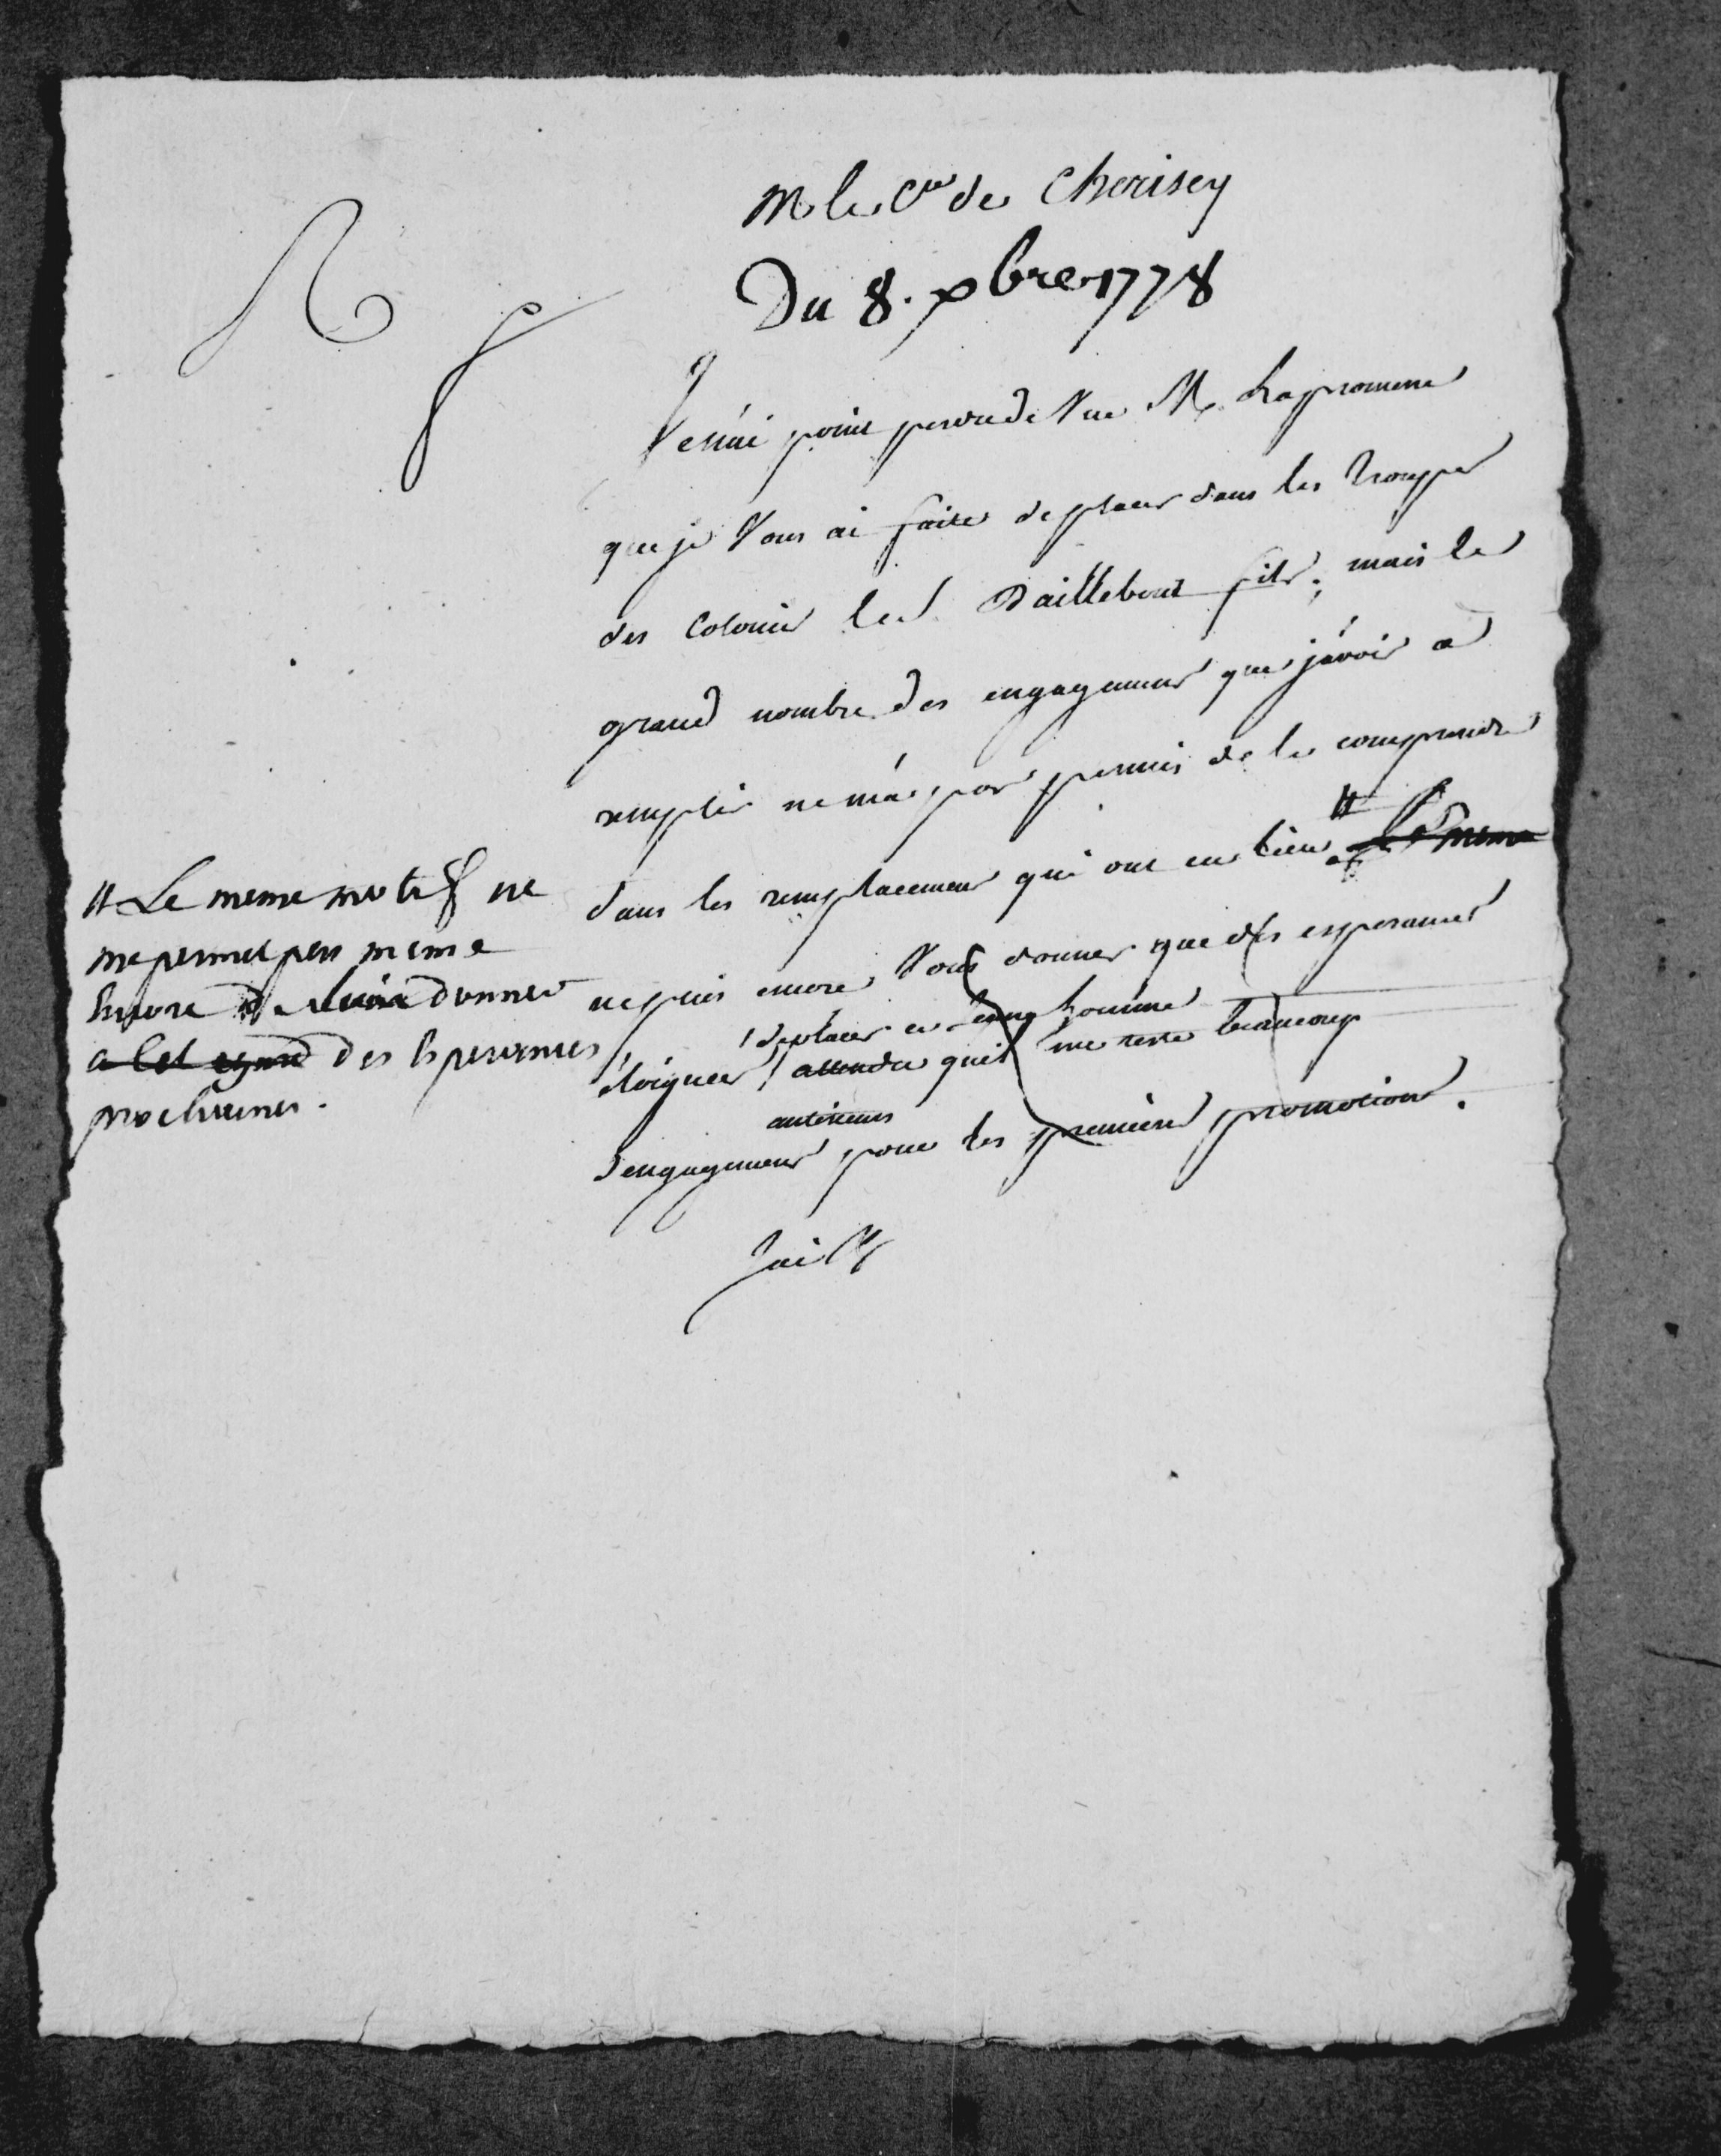 M le Cte de Cherisey
Du 8. xbre 1778
Je n'ai point perdu de Vue M. la promesse
que je Vous ai faite de placer dans les Troupes
des Colonies le S. Daillebout fils; mais le
grand nombre des engagemens que j'avois a
remplir ne m'a pas permis de le comprendre
dans les remplacemens qui ont eu lieu #
ne puis encore Vous donner que des esperances
de placer ce jeune homme
éloignées, attendu qu'il me reste beaucoup
antérieurs
d'engagemens pour les premieres promotions.
J'ai
# Le meme motif ne
me permet pas meme
Encore de donner
a cet egard des Esperances
prochaines.